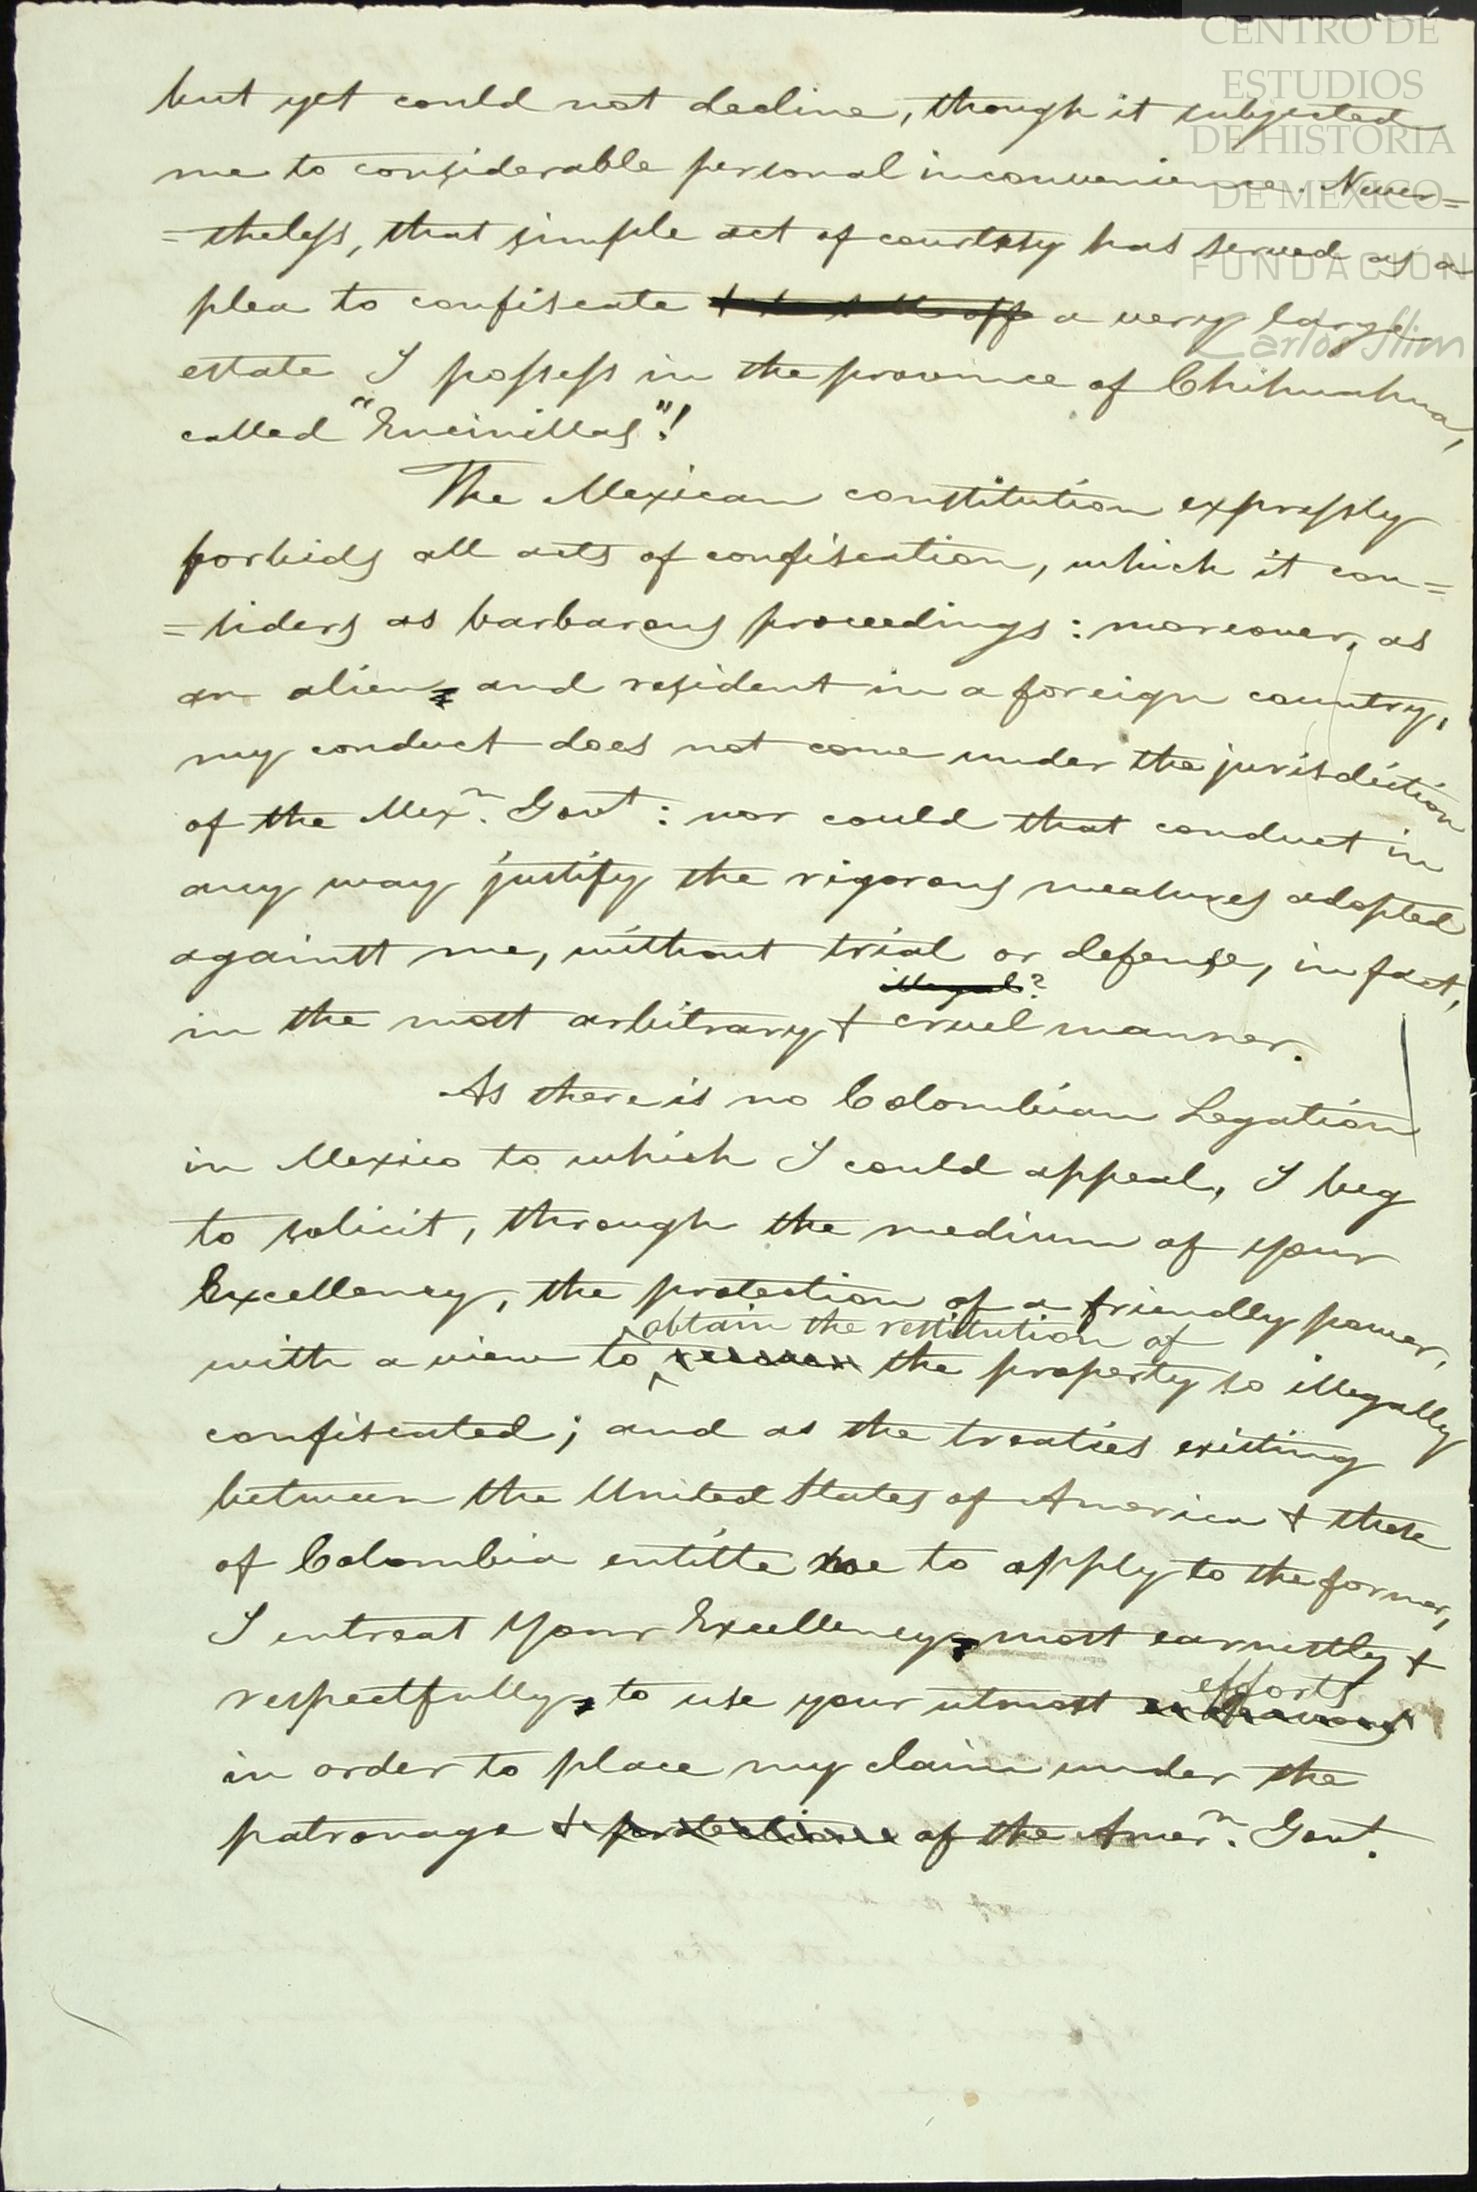 CENTRO DE
ESTUDIOS
DE HISTORIA
DE MEXICO
FUNDACIÓN
Carlos Slim
but yet could not decline, though it subjected
me to considerable personal inconvenience. Never=
=theless, that simple act of courtesy has served as a
plea to confiscate a very large
estate I possess in the province of Chihuahua,
called "Encinillas"!
The Mexican constitution expressly
forbids all acts of confiscation, which it con=
=siders as barbarous proceedings: moreover, as
an alien, and resident in a foreign country,
my conduct does not come under the jurisdiction
of the Mexn. Govt: nor could that conduct in
any way justify the rigorous measures adopted
against me, without trial or defense, in fact,
illegal?
in the most arbitrary & cruel manner.
As there is no Colombian Legation
in Mexico to which I could appeal, I beg
to solicit, through the medium of your
Excellency, the protection of a friendly power,
obtain the restitution of
with a view to recover the property so illegally
confiscated; and as the treaties existing
between the United States of America & those
of Colombia entitle me to apply to the former,
I entreat Your Excellency, most earnestly &
efforts
respectfully, to use your utmost endeavours
in order to place my claim under the
patronage & protection of the Amern. Govt.